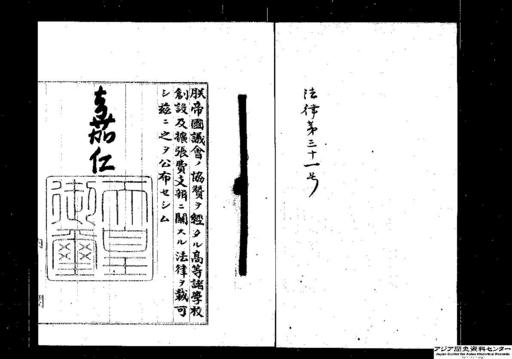 法律第三十一号
朕帝國議會ノ協賛ヲ經タル高等諸學校
創設及擴張費支辨ニ關スル法律ヲ裁可
シ茲ニ之ヲ公布セシム
嘉仁
天皇
御璽
閣
アジア歴史資料センター
Japan Center for Asian Historical Records